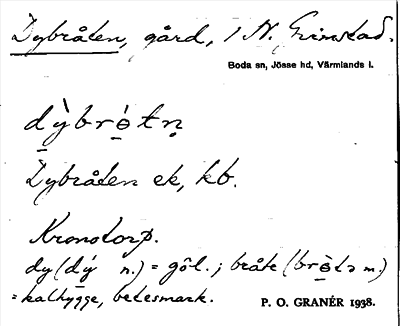 Dybråten, gård, i N. Grinstad.
Boda sn, Jösse hd, Värmlands l.
dỳbrótn̥
Dybråten ek, kb.
Kronotorp.
dy (dý n.) = göl.; bråte (bròtə m.)
= kalhygge, betesmark.
P. O. GRANÉR 1938.